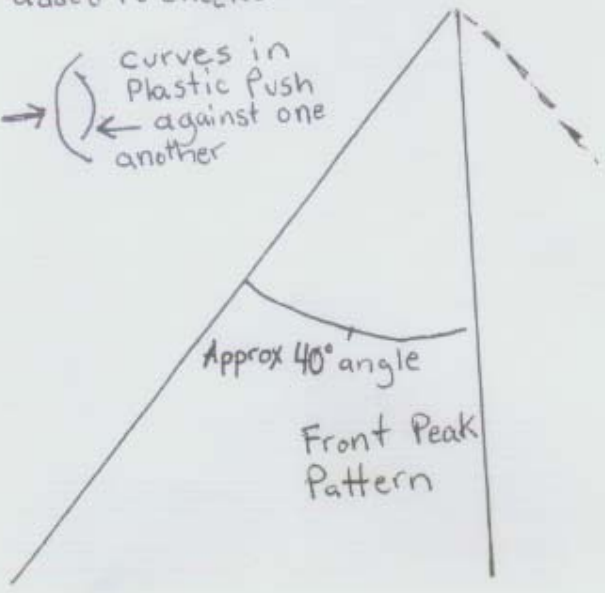 curves in
Plastic Push
against one
another
Approx 40° angle
Front Peak
Pattern